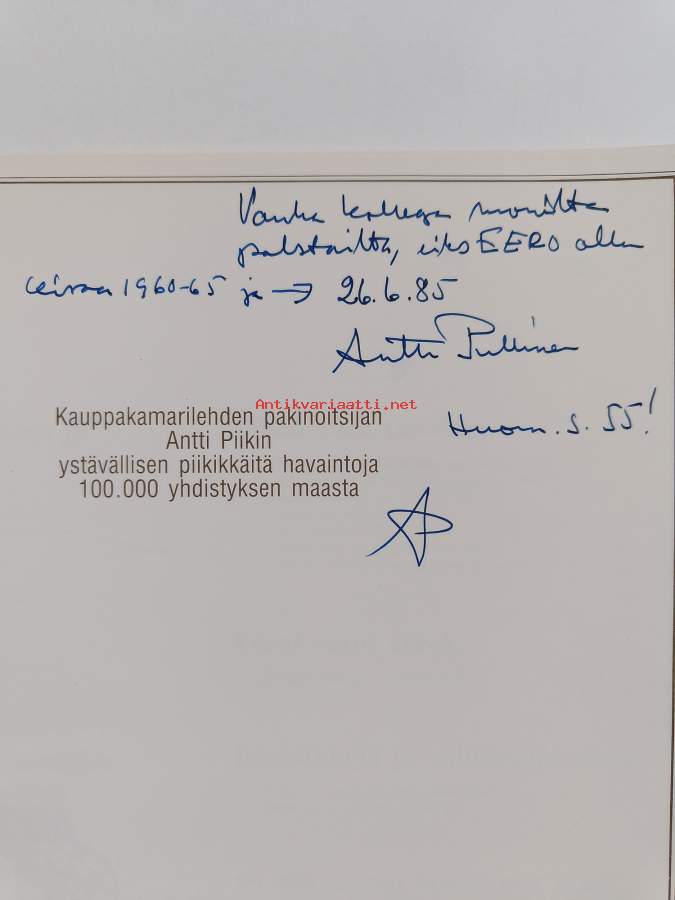 Vanha kollega monilta
palstoilta, eiks EERO
1960-65 ja → 26.6.85
Antti Pullinen
Antikvariaatti.net
Huom. s. 55!
Kauppakamarilehden pakinoitsijan
Antti Piikin
ystävällisen piikikkäitä havaintoja
100.000 yhdistyksen maasta
AP